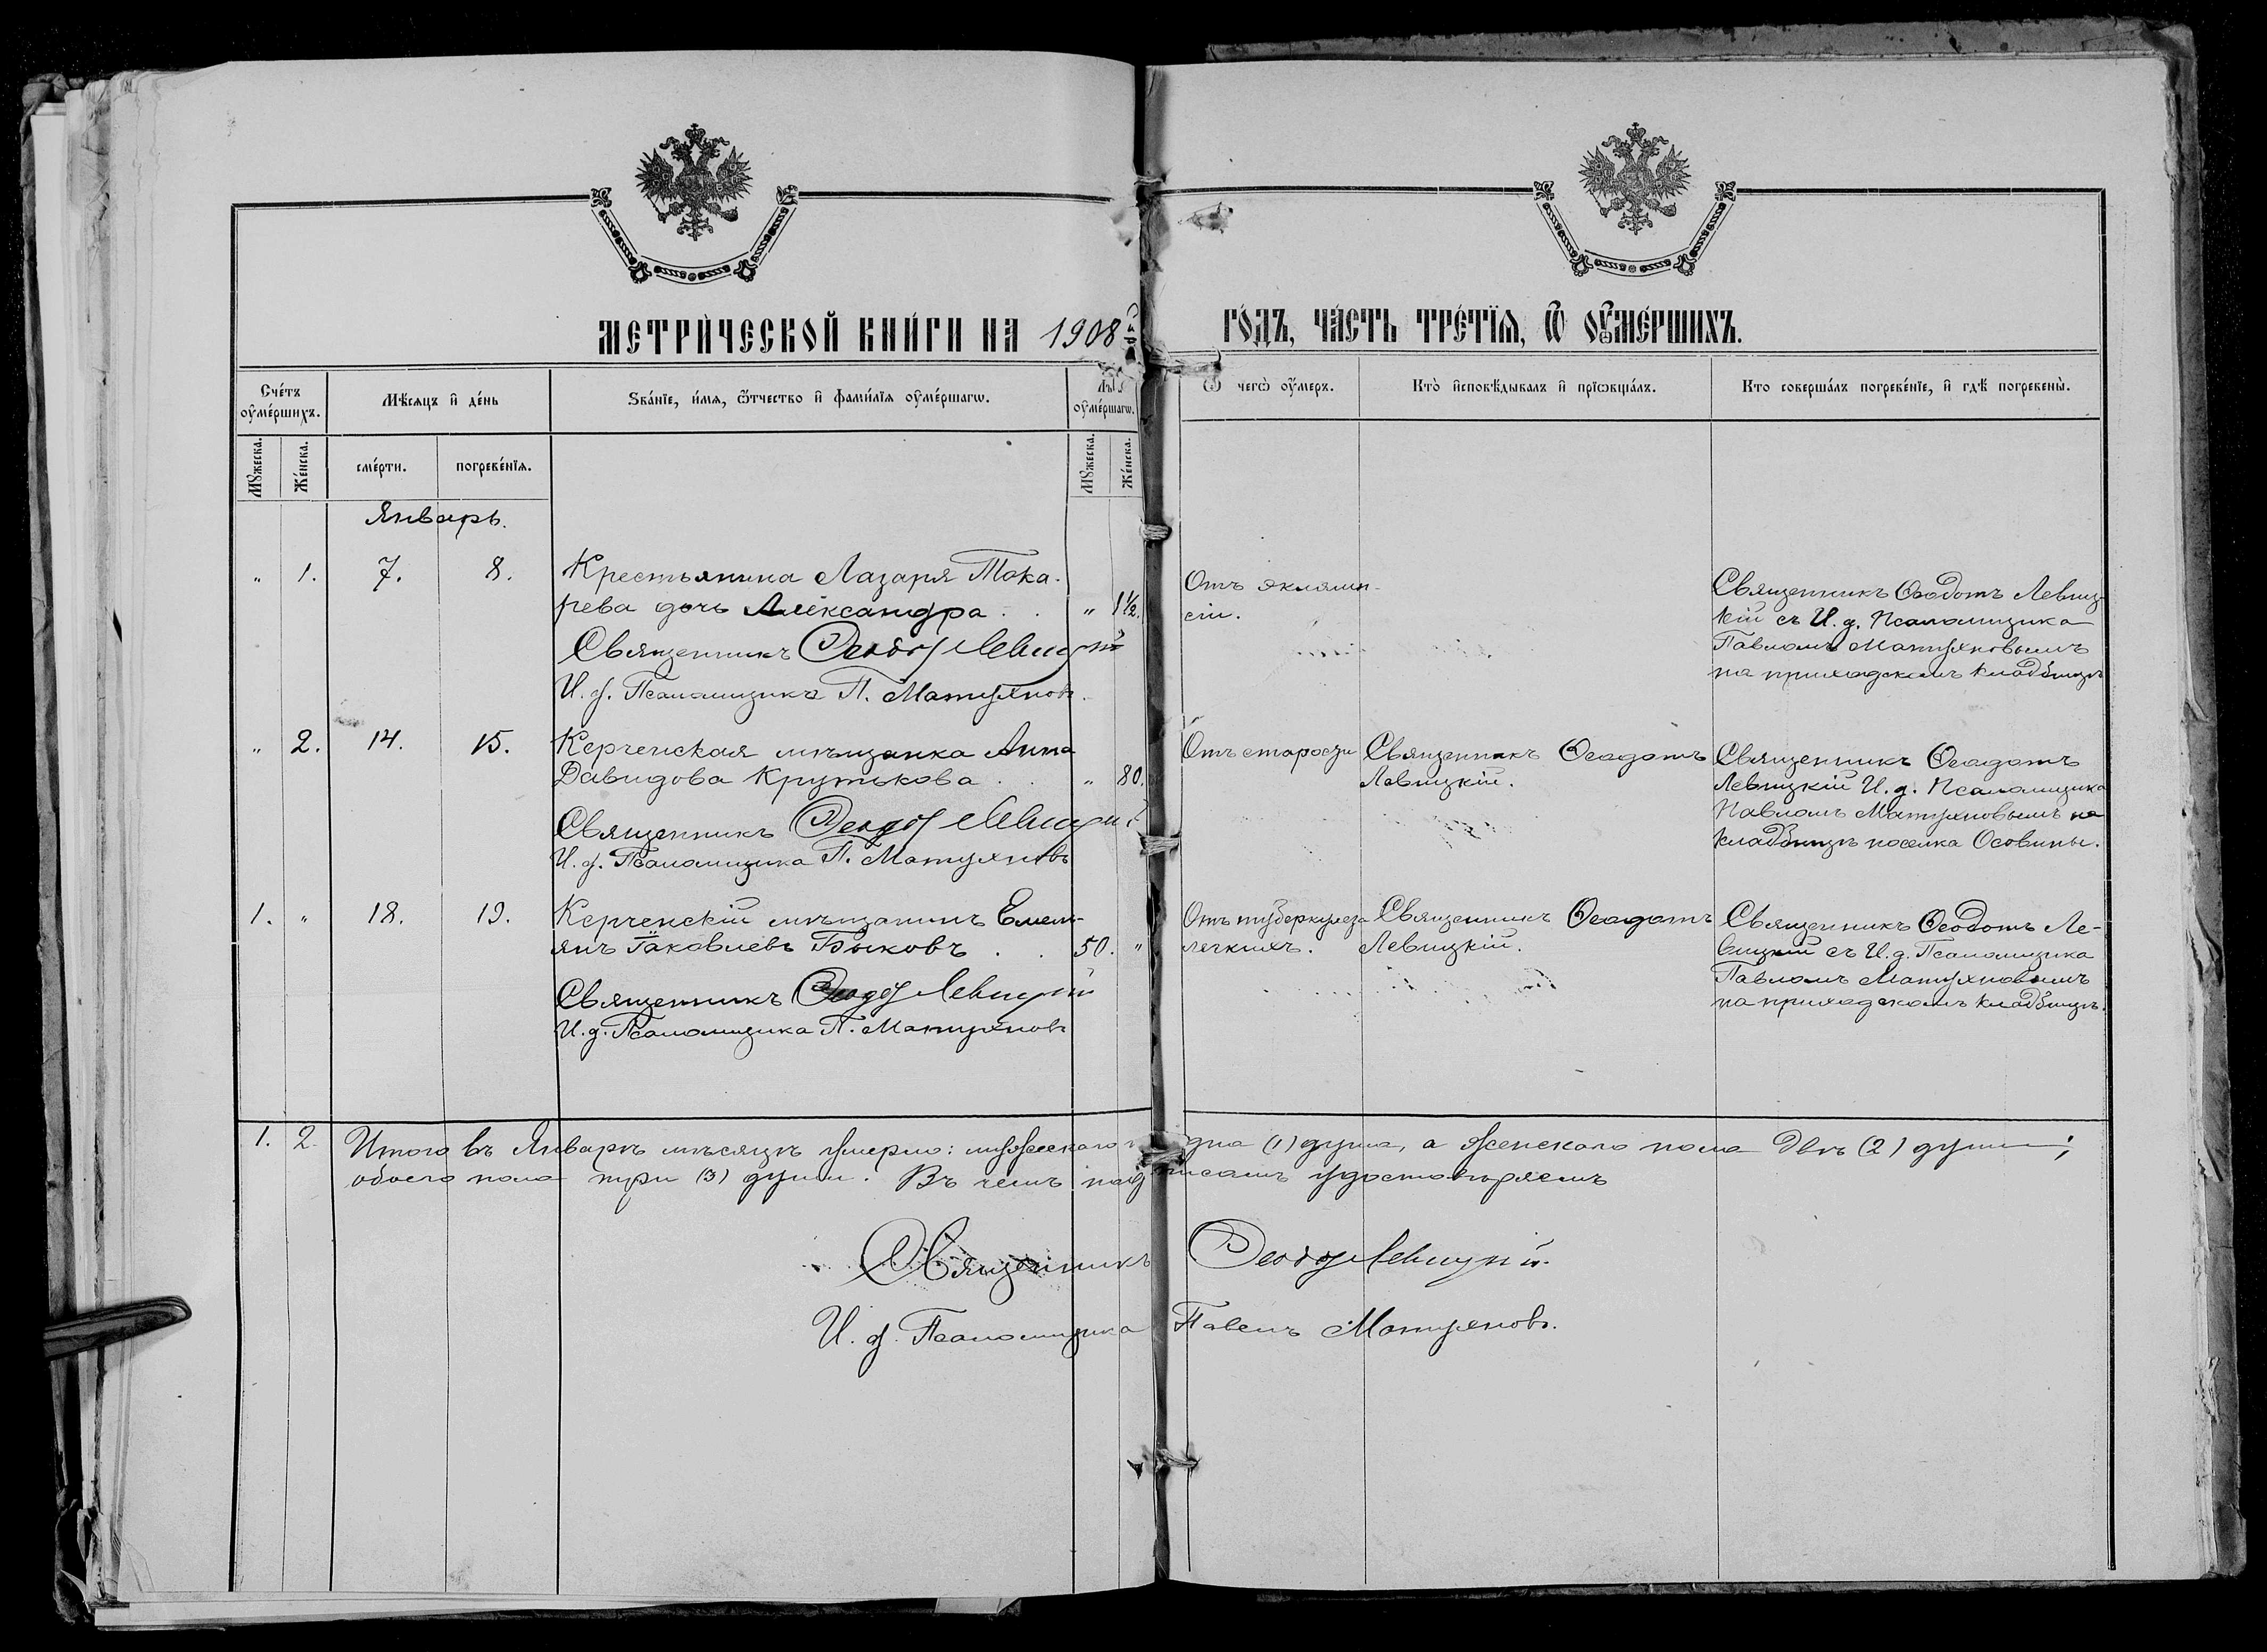 МЕТРИ́ЧЕСКОЙ КНИ́ГИ НА 1908 ГО́ДЪ, ЧА́СТЬ ТРЕ́ТЇѦ, Ѿ ОУ҆МЕ́РШИХЪ.
Сче́тъ оу҆ме́ршихъ.
Мѣ́сѧцъ и҆ де́нь
Ѕва́нїе, и҆́мѧ, ѻ҆́тчество и҆ фами́лїѧ оу҆ме́ршагѡ.
оу҆ме́ршагѡ.
Ѿ чегѡ̀ оу҆́меръ.
Кто̀ и҆сповѣ́дывалъ и҆ прїѡбща́лъ.
Кто соверша́лъ погребе́нїе, и҆ гдѣ̀ погребены̀.
Мꙋ́жеска.
Же́нска.
сме́рти.
погребе́нїѧ.
Мꙋ́жеска.
Же́нска.
Январь.
„ 1. 7. 8. Крестьянина Лазаря Тока-
рева дочь Александра . . „ 1½.
Священникъ Ѳеодотъ Левицкій
И. д. Псаломщика П. Матуяновъ.
Отъ эклямп-
сіи.
Священникъ Ѳеодотъ Левиц-
кій съ И. д. Псаломщика
Павломъ Матуяновымъ
на приходскомъ кладбищѣ
„ 2. 14. 15. Керченская мѣщанка Анна
Давидова Крутькова . . „ 80.
Священникъ Ѳеодотъ Левицкій
И. д. Псаломщика П. Матуяновъ
Отъ старости
Священникъ Ѳеодотъ
Левицкій.
Священникъ Ѳеодотъ
Левицкій И. д. Псаломщика
Павломъ Матуяновымъ на
кладбищѣ поселка Осовины.
1. „ 18. 19. Керченскій мѣщанинъ Емель-
янъ Іаковлевъ Быковъ . . 50. „
Священникъ Ѳеодотъ Левицкій
И. д. Псаломщика П. Матуяновъ
Отъ туберкулеза
легкихъ.
Священникъ Ѳеодотъ
Левицкій.
Священникъ Ѳеодотъ Ле-
вицкій съ И. д. Псаломщика
Павломъ Матуяновымъ
на приходскомъ кладбищѣ.
1. 2. Итого въ Январѣ мѣсяцѣ умерло: мужескаго дна (1) душа, а женскаго пола двѣ (2) души;
обоего пола три (3) души. Въ чемъ подписомъ удостовѣряемъ
Священникъ Ѳеодотъ Левицкій.
И. д. Псаломщика Павелъ Матуяновъ.